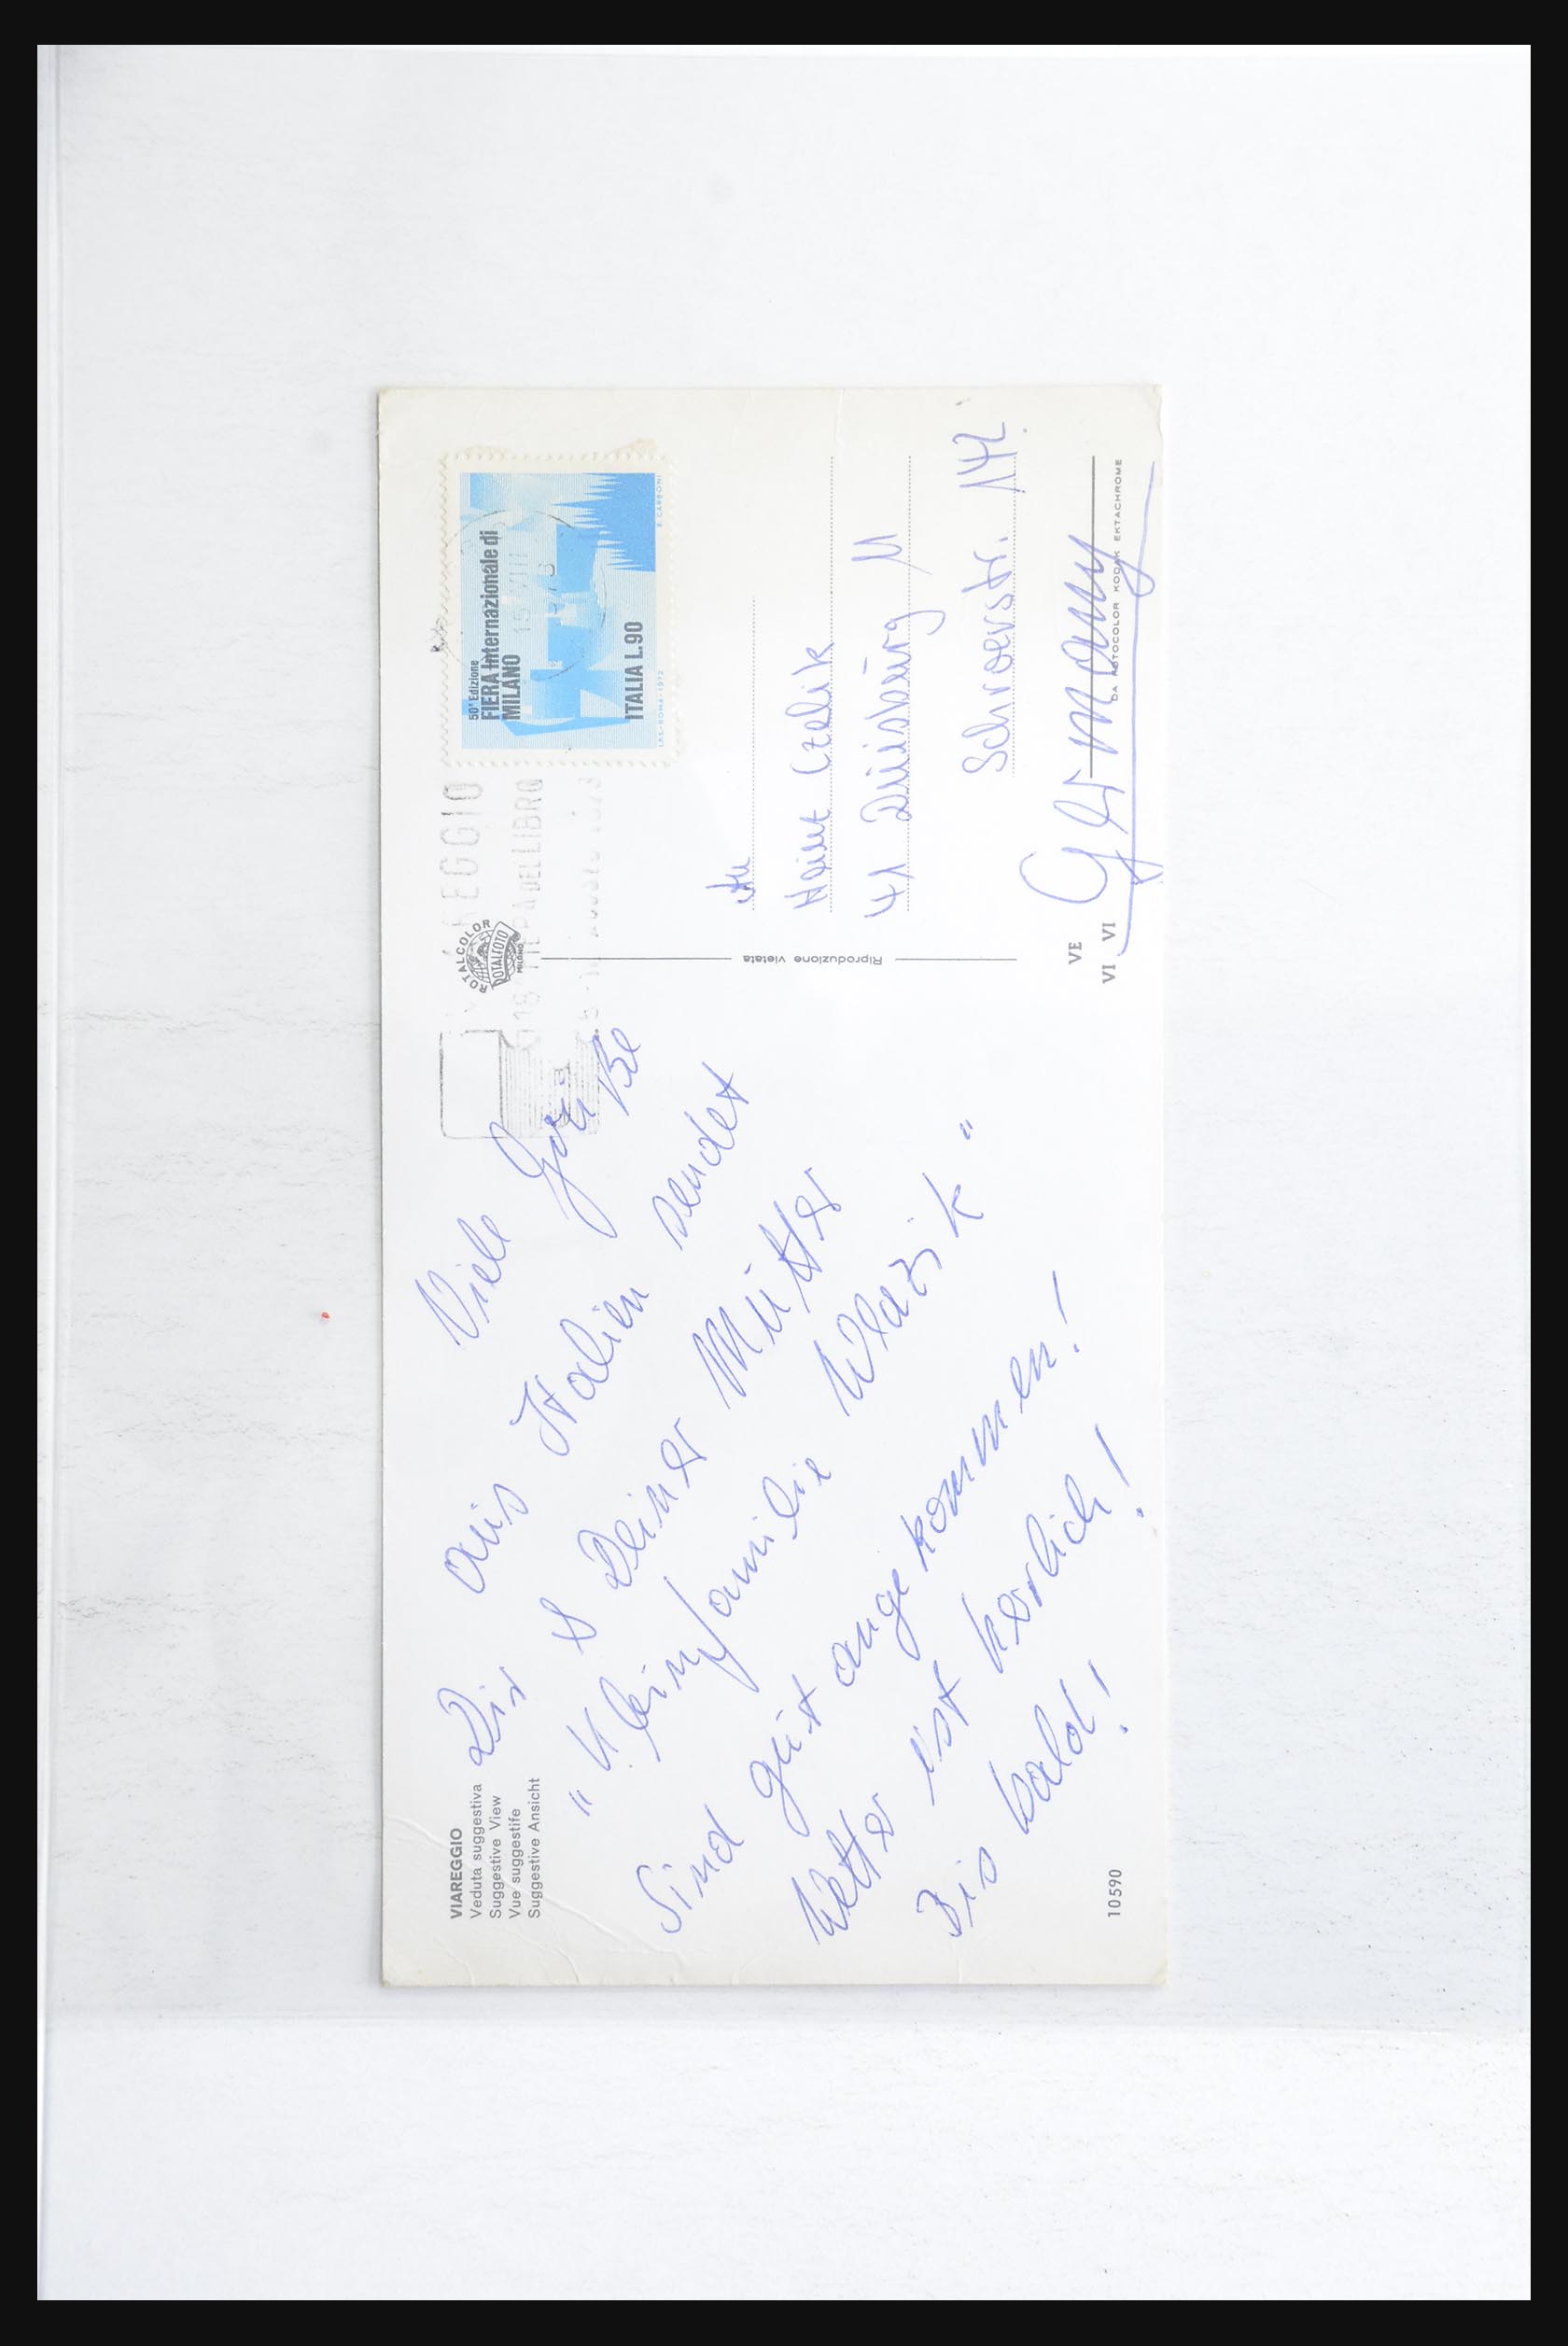 VIAREGGIO
Veduta suggestiva
Suggestive View
Vue suggestife
Suggestive Ansicht
Viele Grüße
aus Italien sendet
Dir & Deiner Mutter
"Kleinfamilie Wlazik"
Sind gut angekommen!
Wetter ist herlich!
Bis bald!
10590
ROTALCOLOR
ROTALFOTO
MILANO
Riproduzione vietata
VE
VI VI
DEL LIBRO
50ª Edizione
FIERA Internazionale di
MILANO
ITALIA L.90
I.P.S.-ROMA-1972
E. CARBONI
An
Czelik
41 Duisburg 11
Schroerstr. 142
Germany
DA ROTOCOLOR KODAK EKTACHROME